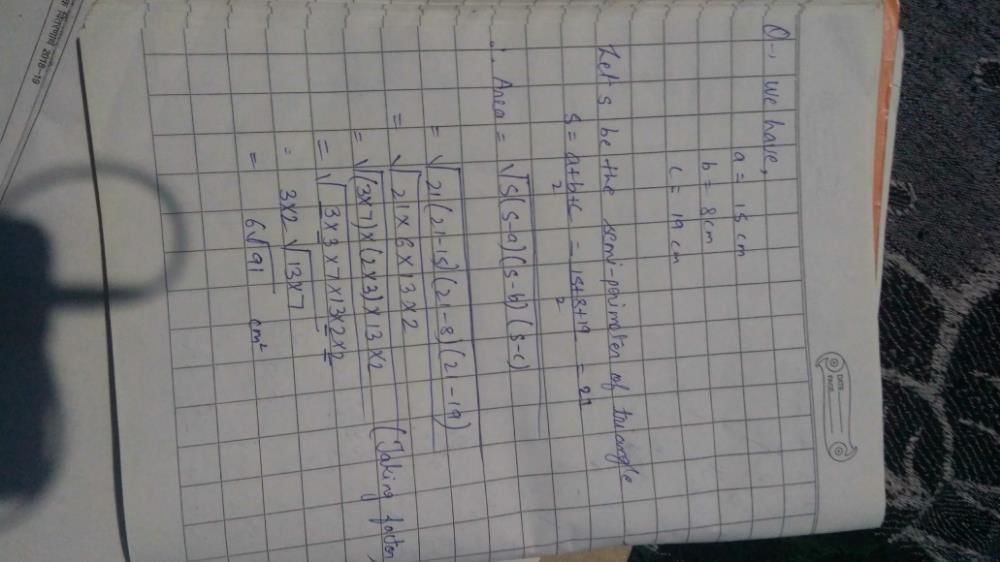 DATE
PAGE
Q-, We have,
a = 15 cm
b = 8cm
c = 19 cm
Let s be the semi-perimeter of triangle
S = a+b+c/2 = 15+8+19/2 = 21
∴ Area = √S(S-a)(S-b)(S-c)
= √21(21-15)(21-8)(21-19)
= √21×6×13×2
= √(3×7)×(2×3)×13×2 (Taking factor
= √3×3×7×13×2×2
= 3×2√13×7
= 6√91 cm²
2018-19